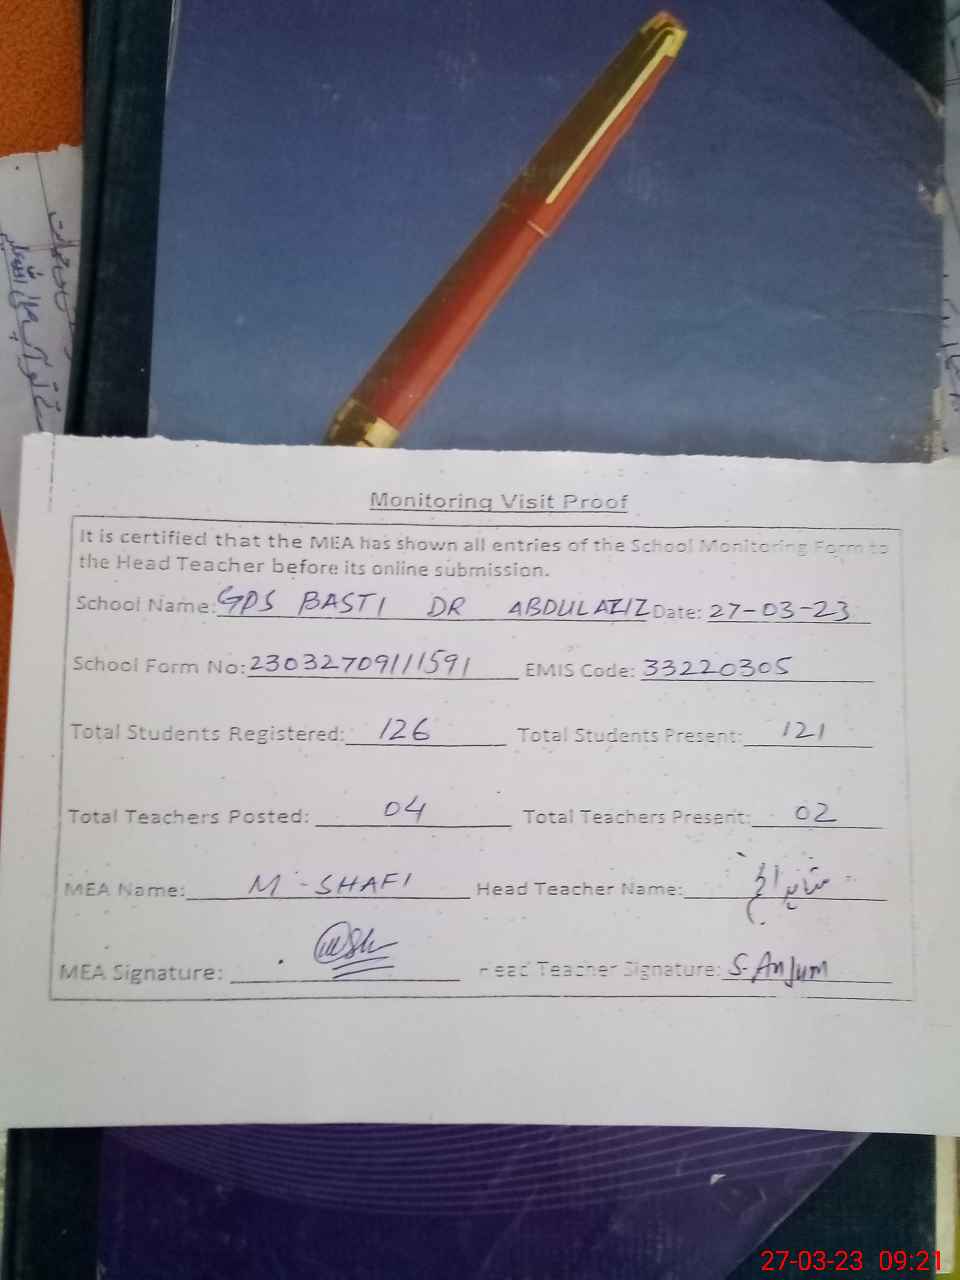 Monitoring Visit Proof
It is certified that the MEA has shown all entries of the School Monitoring Form to
the Head Teacher before its online submission.
School Name: GPS BASTI DR ABDUL AZIZ Date: 27-03-23
School Form No: 230327091111591 EMIS Code: 33220305
Total Students Registered: 126 Total Students Present: 121
Total Teachers Posted: 04 Total Teachers Present: 02
MEA Name: M-SHAFI Head Teacher Name:
MEA Signature: Head Teacher Signature: S-Anjum
27-03-23 09:21